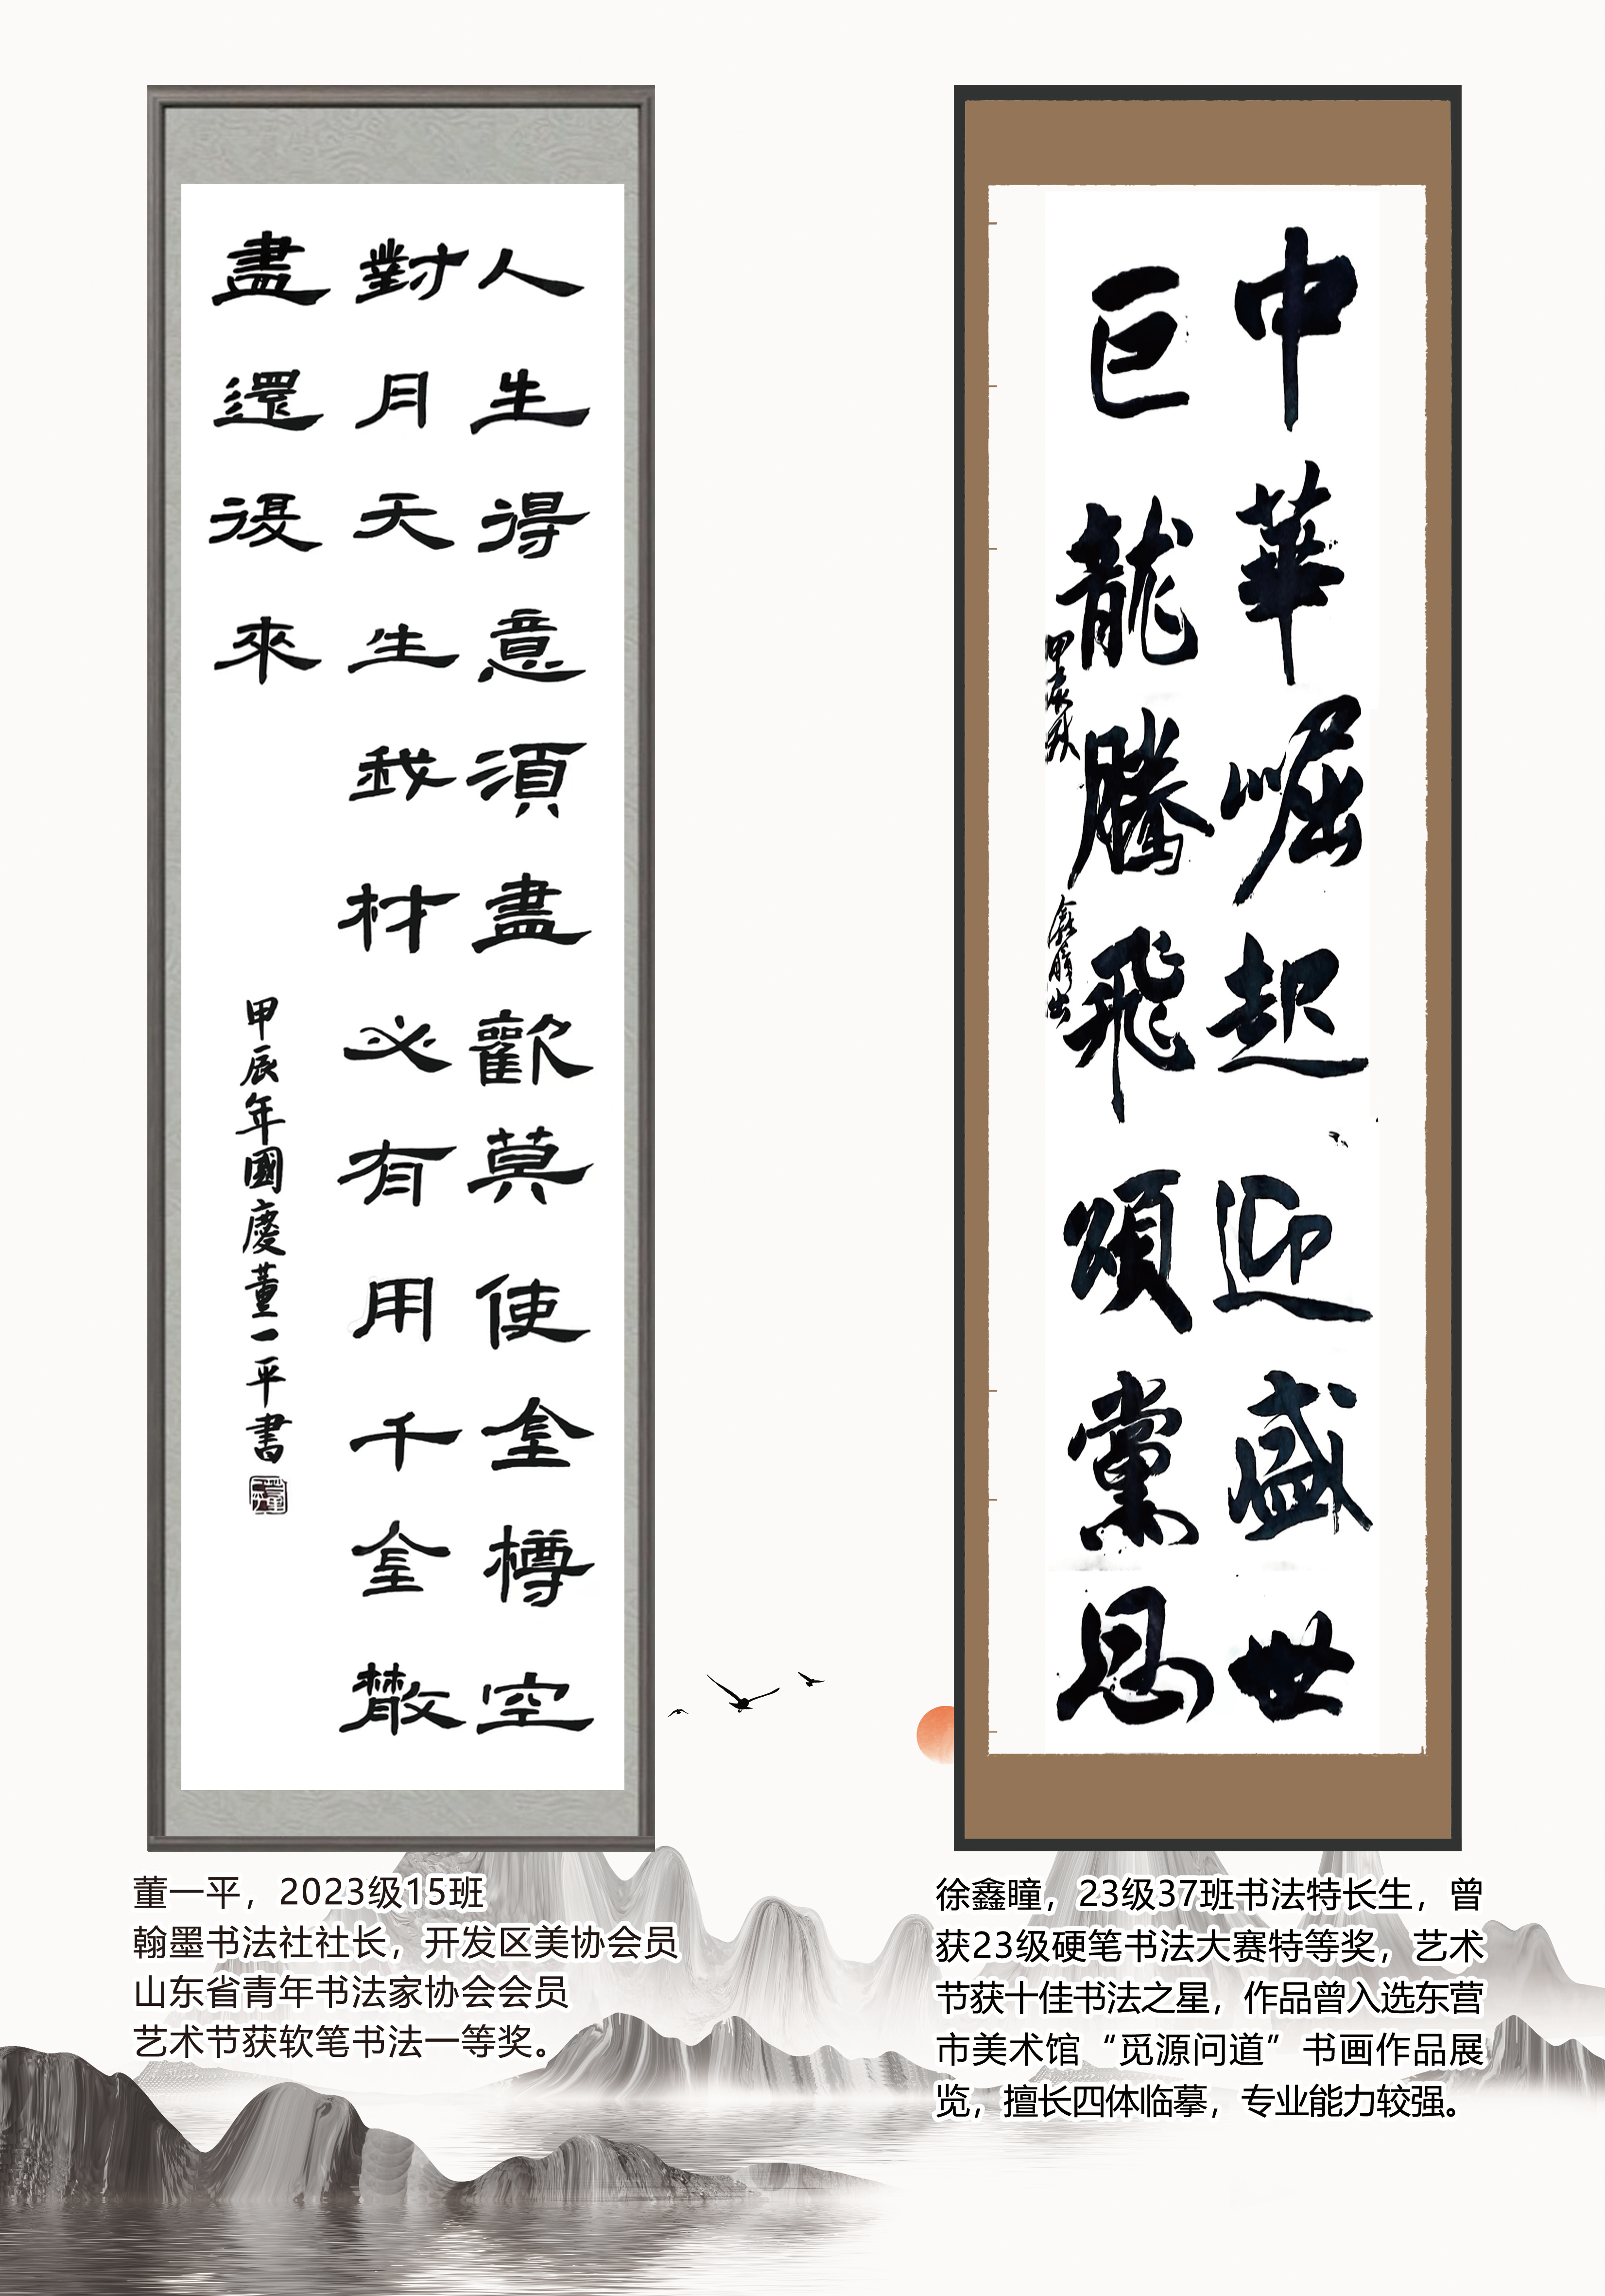 人生得意須盡歡莫使金樽空
對月天生我材必有用千金散
盡還復來
甲辰年國慶董一平書
中華崛起迎盛世
巨龍騰飛頌黨恩
甲辰秋
鑫瞳书
董一平，2023级15班
翰墨书法社社长，开发区美协会员
山东省青年书法家协会会员
艺术节获软笔书法一等奖。
徐鑫瞳，23级37班书法特长生，曾
获23级硬笔书法大赛特等奖，艺术
节获十佳书法之星，作品曾入选东营
市美术馆“觅源问道”书画作品展
览，擅长四体临摹，专业能力较强。